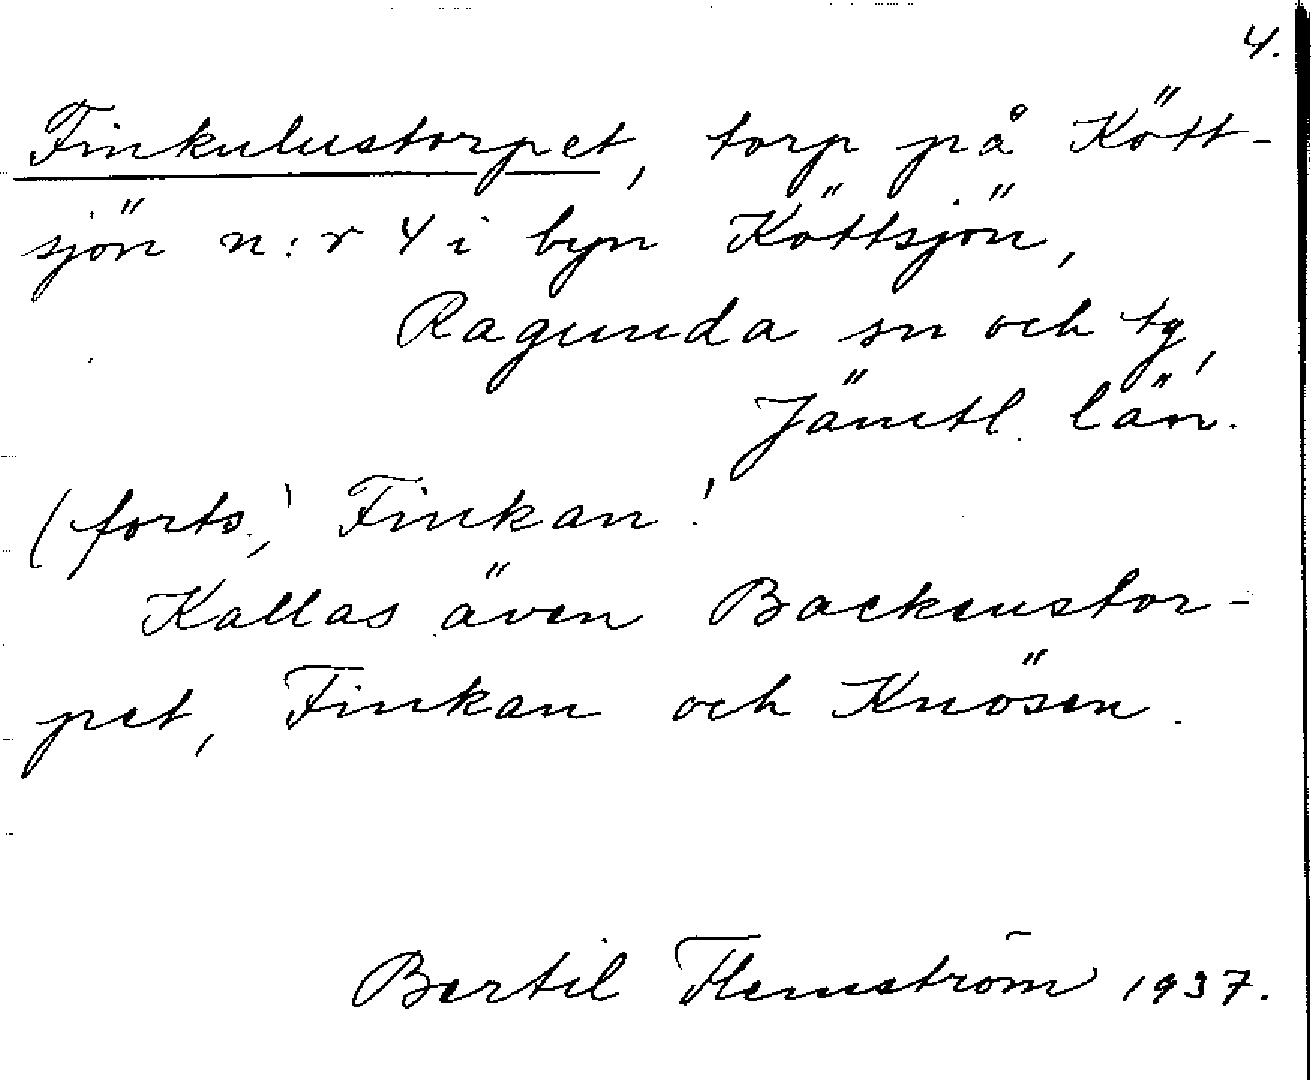 4.
Finkulustorpet, torp på Kött-
sjön n:r 4 i byn Köttsjön,
Ragunda sn och tg,
Jämtl. län.
(forts.; Finkan!
Kallas även Backenstor-
pet, Finkan och Knösen.
Bertil Flemström 1937.